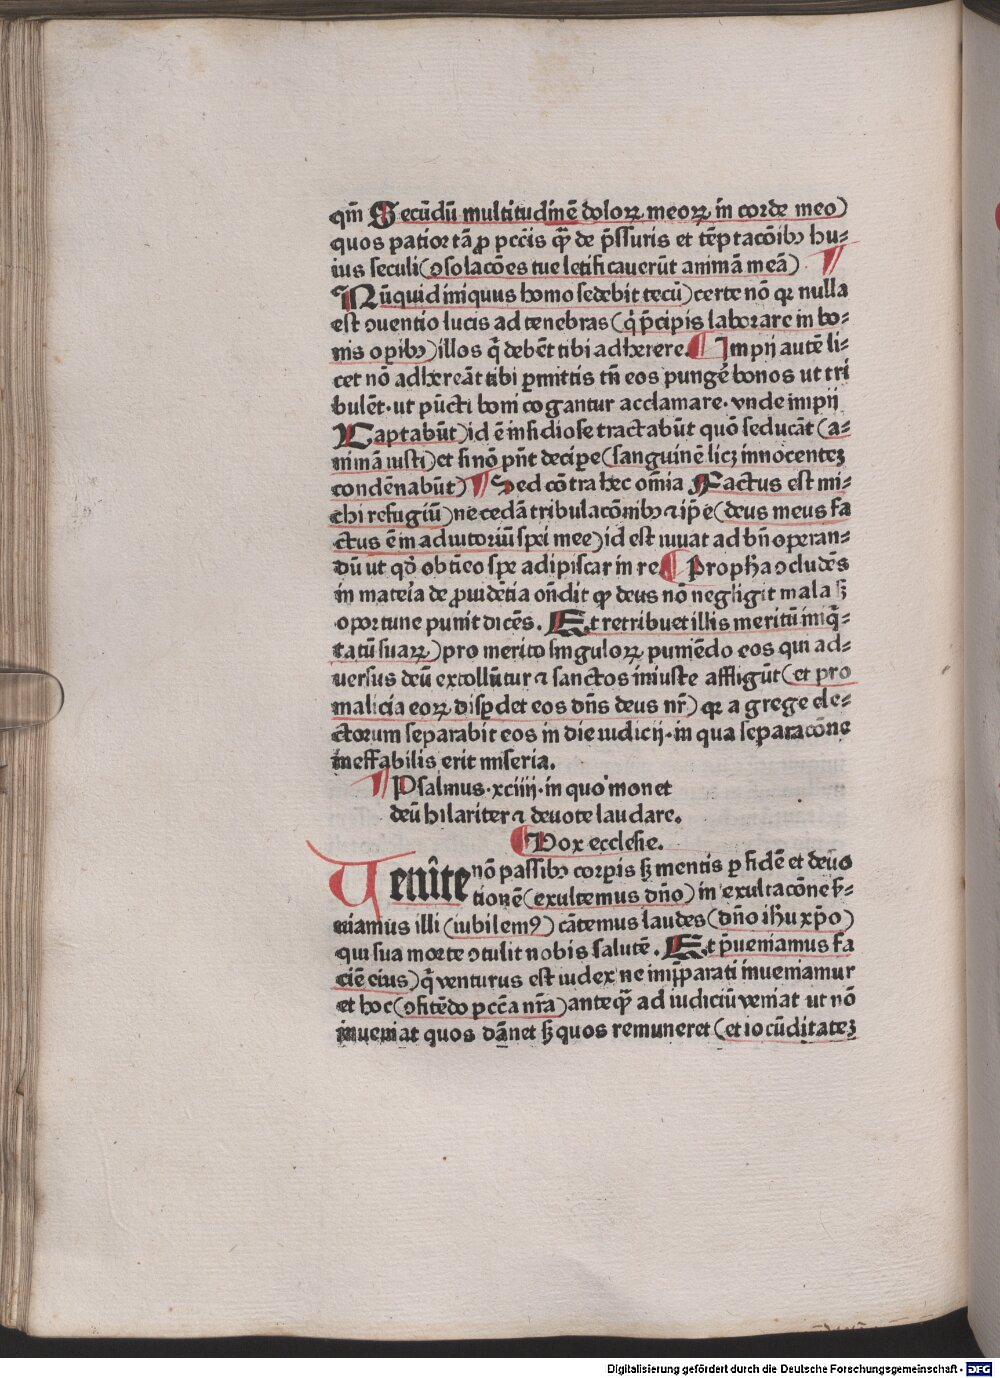 qm̄ Secūdū multitudinē doloꝝ meoꝝ in corde meo)
quos patior tā ꝓ pcc̄is qͣ̄ de p̄ssuris et tēptacōibꝫ hu⸗
ius seculi(ꝯsolacōes tue letificauerūt animā meā)
Nūquid iniquus homo sedebit tecū)certe nō qꝛ nulla
est ꝯuentio lucis ad tenebras(q̇ p̄cipis laborare in bo⸗
nis oꝑibꝫ)illos q̄ debēt tibi adherere. Impij autē li⸗
cet nō adhereāt tibi ꝑmittis tn̄ eos pungē bonos ut tri
bulēt·ut pūcti boni cogantur acclamare·vnde impij
Captabūt)id ē insidiose tractabūt quō seducāt(a⸗
nimā iusti)et si nō pn̄t deciꝑe(sanguinē licꝫ innocenteꝫ
condēnabūt) Sed cōtra hec om̄ia Factus est mi⸗
chi refugiū)ne cedā tribulacōnibꝫ ꝛ ip̄e(deus meus fa
ctus ē in adiutoriū spei mee)id est iuuat ad bn̄ operan⸗
dū ut qd̓ obtīeo spe adipiscar in re Prophͣa ꝯcludēs
in mateīa de ꝓuidētia on̄dit ꝙ deus nō negligit mala sꝫ
oportune punit dicēs. Et retribuet illis meritū iniq̄⸗
tatū suaꝝ)pro merito singuloꝝ puniēdo eos qui ad⸗
uersus deū extollūtur ꝛ sanctos iniuste affligūt(et pro
malicia eoꝝ disꝑdet eos dn̄s deus nr̄)qꝛ a grege ele⸗
ctorum separabit eos in die iudicij·in qua separacōne
ineffabilis erit miseria.
Psalmus·xciiij·in quo monet
deū hilariter ꝛ deuote laudare.
Vox ecclesie.
Uenite nō passibꝫ corꝑis sꝫ mentis ꝑ fidē et deuo
tionē(exultemus dn̄o)in exultacōne s̄⸗
uiamus illi(iubilemꝰ)cātemus laudes(dn̄o ihū xp̄o)
qui sua morte ꝯtulit nobis salutē. Et p̄ueniamus fa
ciē eius)q̄ venturus est iudex ne imp̄parati inueniamur
et hoc(ꝯfitēdo pcc̄a nr̄a)anteqͣ̄ ad iudiciū veniat ut nō
inueniat quos dānet sꝫ quos remuneret(et iocūditateꝫ
Digitalisierung gefördert durch die Deutsche Forschungsgemeinschaft - DFG